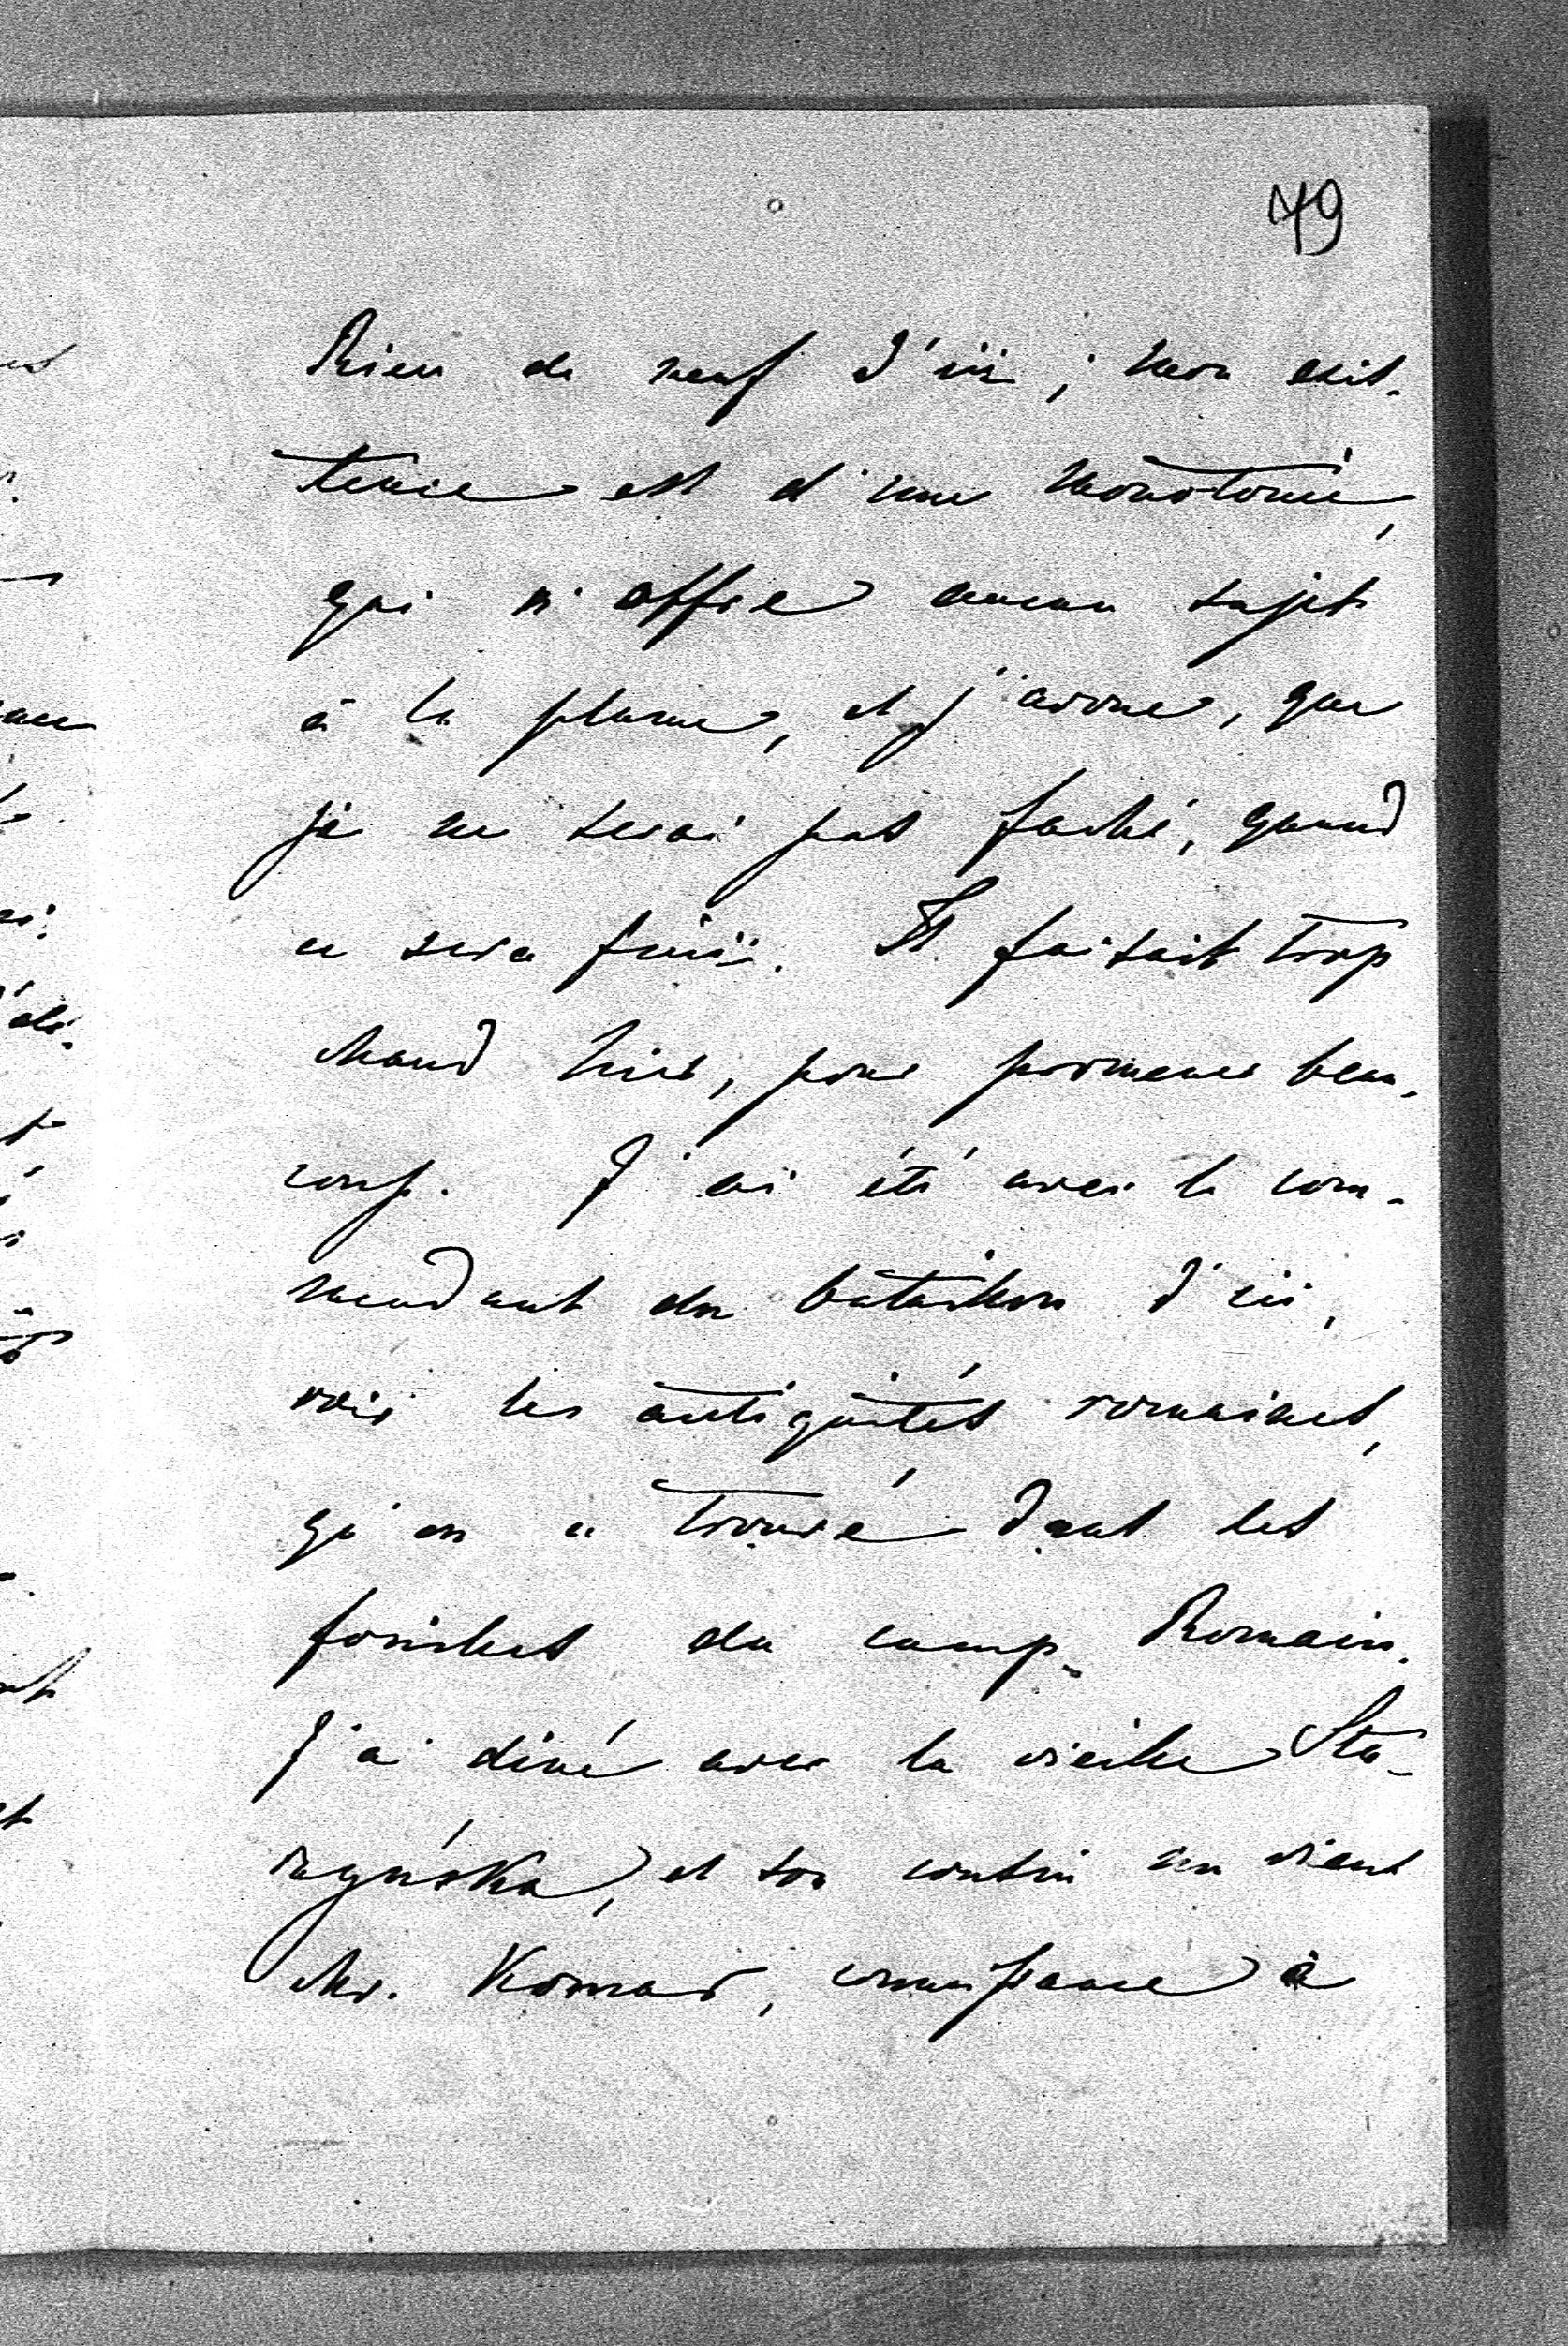 79
Rien de neuf d'ici; mon exis-
tence est d'une monotonie,
qui n'offre aucun sujet
à la plume, et j'avoue, que
je ne serai pas faché, quand
ce sera fini. Il faisait trop
chaud hier, pour promener beau-
coup. J'ai été avec le com-
mandant du bataillon d'ici,
voir les antiquités romaines,
qu'on a trouvé dans les
fouilles du camp Romain.
J'ai diné avec la vieille Sta-
rzyńska, et son cousin un vieux
Mr. Komar, comparse à